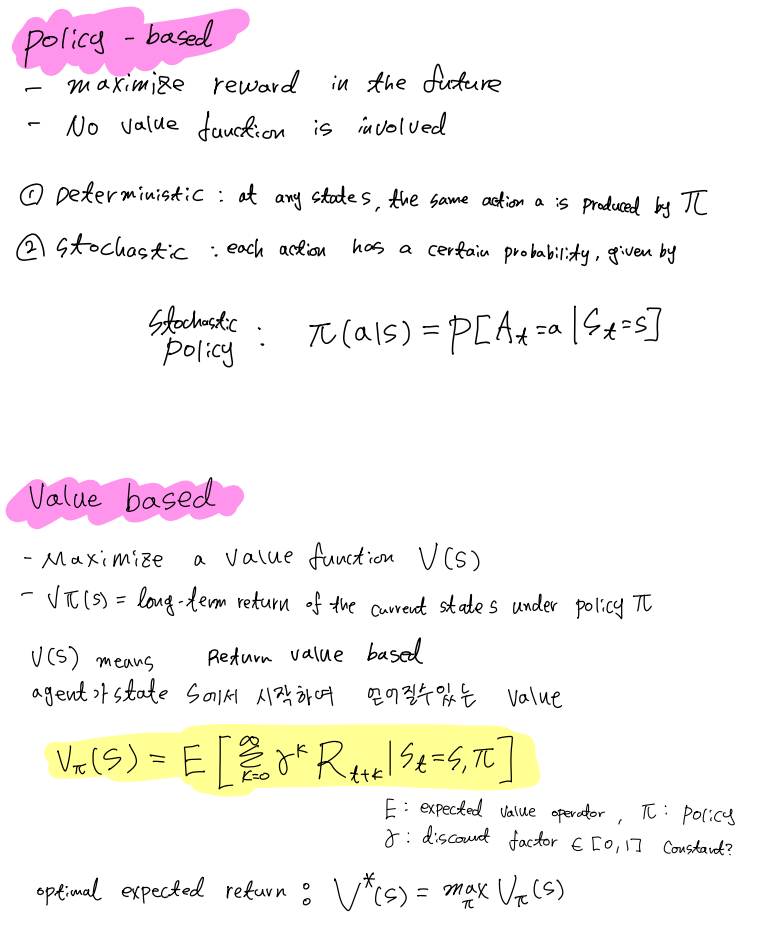 policy - based
- maximize reward in the future
- No value function is involved
① Deterministic : at any states, the same action a is produced by π
② Stochastic : each action has a certain probability, given by
Stochastic policy : π(a|s) = P[A_t=a | S_t=s]
Value based
- Maximize a value function V(s)
- Vπ(s) = long-term return of the current states under policy π
V(s) means Return value based
agent가 state S에서 시작하여 얻어질수있는 value
V_π(s) = E[∑_{k=0}^{∞} γ^k R_{t+k} | S_t=s, π]
E : expected value operator, π : policy
γ : discount factor ∈ [0,1] constant?
optimal expected return : V*(s) = max_π V_π(s)